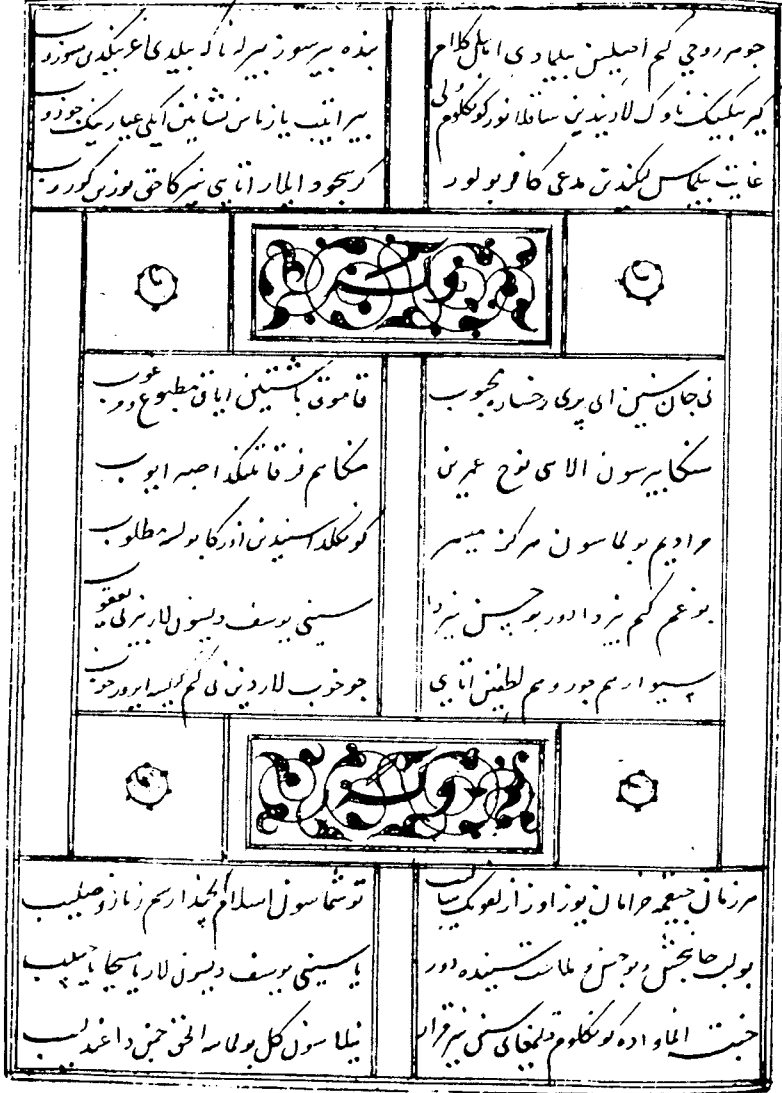 جوهر روحی کم اصیلین بیلمادی اهل کلام
بنده بیر سوز بیرله تا که بیلدی اغزینکدین سوروب
کیربیکینک ناوک لاریندین ساقلانور کونکلوم ولی
بیر اتیب یازماس نشانین ایکی عیارینک
غایت بیلماس لیکیندین مدعی کافر بولور
کر سجود ایلار اتایی حق یوزین کوروب
نی جان سین ای پری رخساره محبوب
قاموق باشتین ایاق مطبوع و مرغوب
سنکا بیرسون الاهی نوح عمرین
منکا هم فرقتینکدا صبر ایوب
مرادیم بولماسون هرکز میسر
کونکلدا سیندین اوزکا بولسه مطلوب
بو غم کم بیزدا دور بو حسن سیزدا
سینی یوسف دیسون لار بیزنی یعقوب
سیوار هم جور و هم لطفین اتایی
چو خوب لاردین نی کم کیلسه ایرور خوب
هر زمان چیقمه خرامان یوز اوزا زلفونک سالیب
توشماسون اسلام ایچیندا رسم زنار و صلیب
بو لب جانبخش و بو حسن و ملاحت سینده دور
یا سینی یوسف دیسون لار یا مسیحا یا حبیب
جنت الماواده کونکلوم قرار
نیلاسون کل بولماسه الحق چمن دا عندلیب